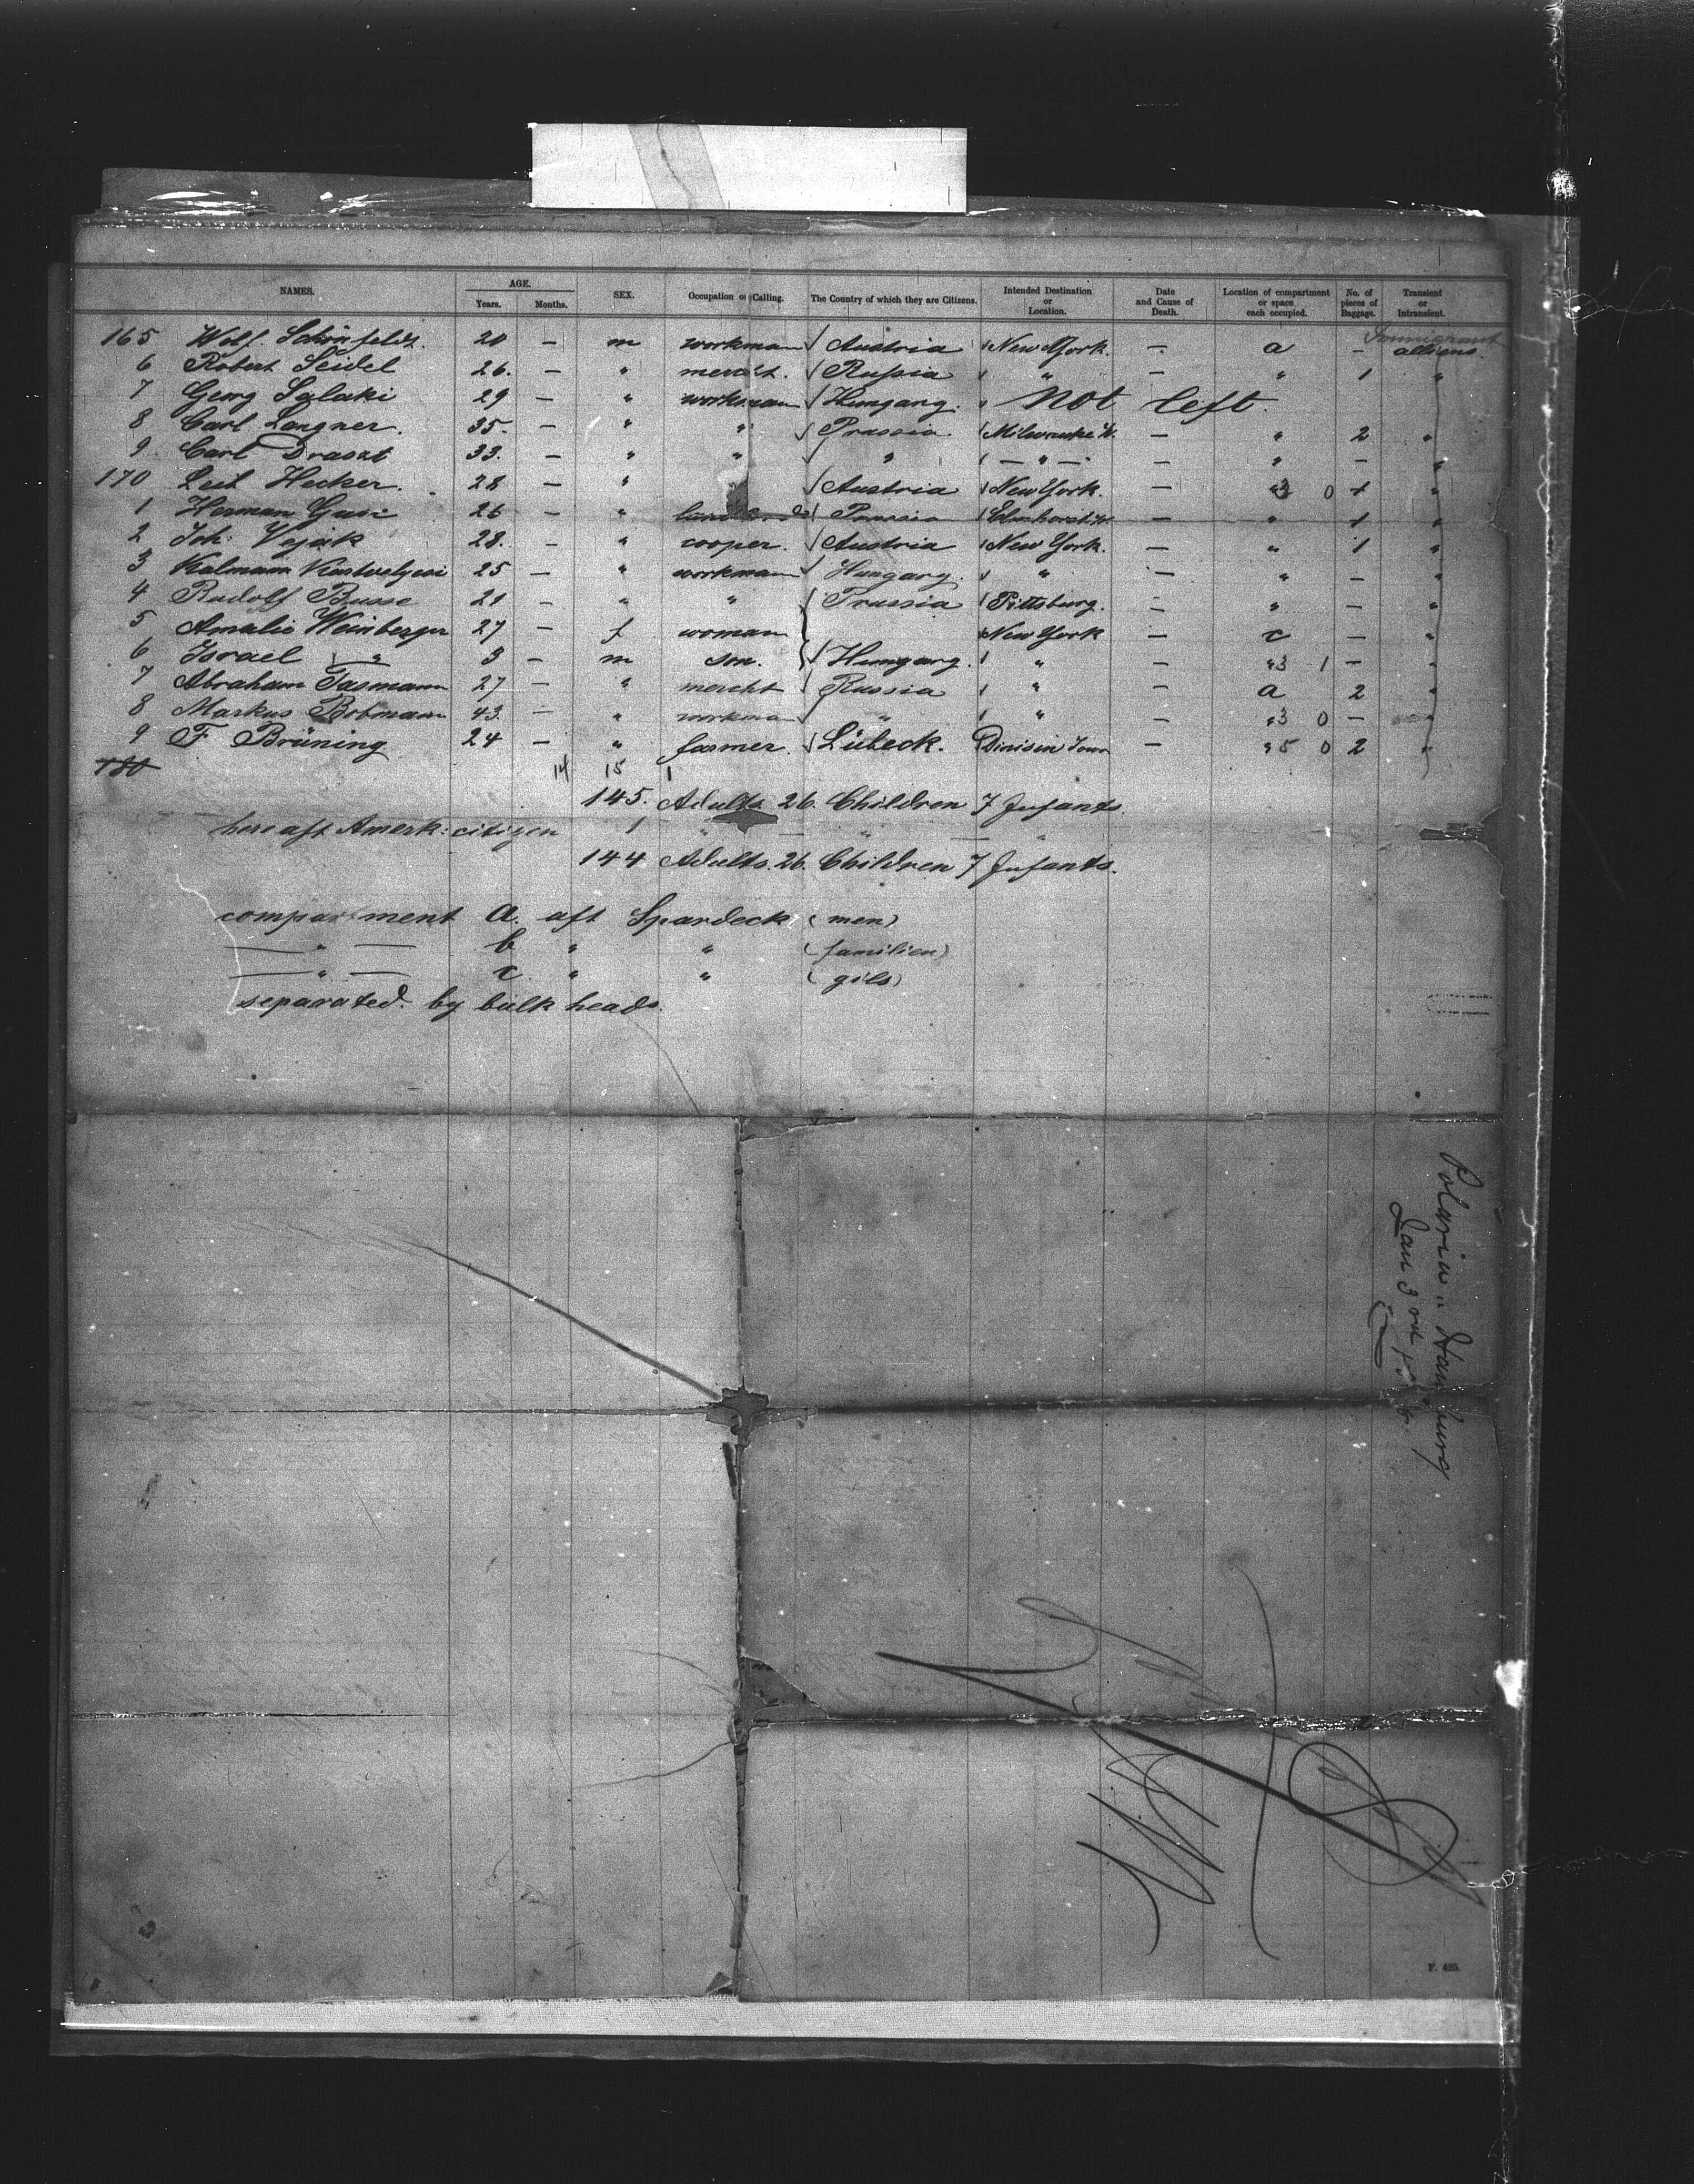 NAMES. AGE. Years. Months. SEX. Occupation or Calling. The Country of which they are Citizens. Intended Destination or Location. Date and Cause of Death. Location of compartment or space each occupied. No. of pieces of Baggage. Transient or Intransient.
165 Wolf Schönfeld 20 — m workman Austria New York. — a — Immigrant aliens.
6 Robert Seidel 26. — " mercht. Russia " — " 1 "
7 Georg Salaki 29 — " workman Hungary. " Not left.
8 Carl Langner. 35. — " " Prussia. Milwaukee W. — " 2 "
9 Carl Draszt 33. — " " " — " — — " — "
170 Leib Hecker. 28 — " Austria New York. — "3 0 1 "
1 Herman 26 — " Prussia — " 1 "
2 Joh: Vejak 28. — " cooper. Austria New York. — " 1 "
3 Kalmann 25 — " workman Hungary. " — " — "
4 Rudolf Busse 21 — " " Prussia Pittsburg. — " — "
5 Amalie Weinberger 27 — f woman New York — c — "
6 Israel — " 3 — m son. Hungary. " — "3 1 — "
7 Abraham Tasmann 27 — " mercht Russia " — a 2 "
8 Markus Botmann 43. — " workman " " — "3 0 — "
9 F. Brüning 24 — " farmer. Lübeck. — "5 0 2 "
180 14 15 1
145. Adults. 26. Children 7 Infants.
here aft Amerk: citizen 1 " — " — "
144 Adults. 26. Children 7 Infants.
compartment a. aft Spardeck (men)
— " — b " " (familien)
— " — c " " (gils)
separated. by bulk heads.
Polaria " Hamburg
Jan 3rd
F. 425.